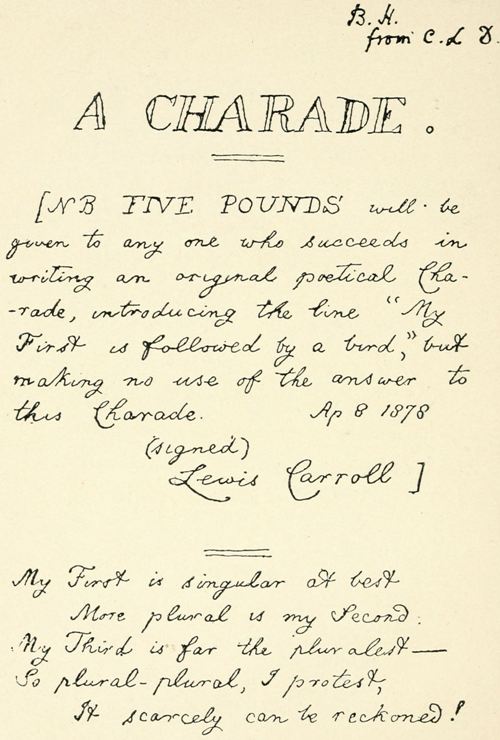 B. H.
from C. L D.
A CHARADE.
[NB FIVE POUNDS will be
given to any one who succeeds in
writing an original poetical Cha-
-rade, introducing the line "My
First is followed by a bird," but
making no use of the answer to
this Charade. Ap 8 1878
(signed)
Lewis Carroll]
My First is singular at best
More plural is my Second.
My Third is far the pluralest—
So plural-plural, I protest,
It scarcely can be reckoned!